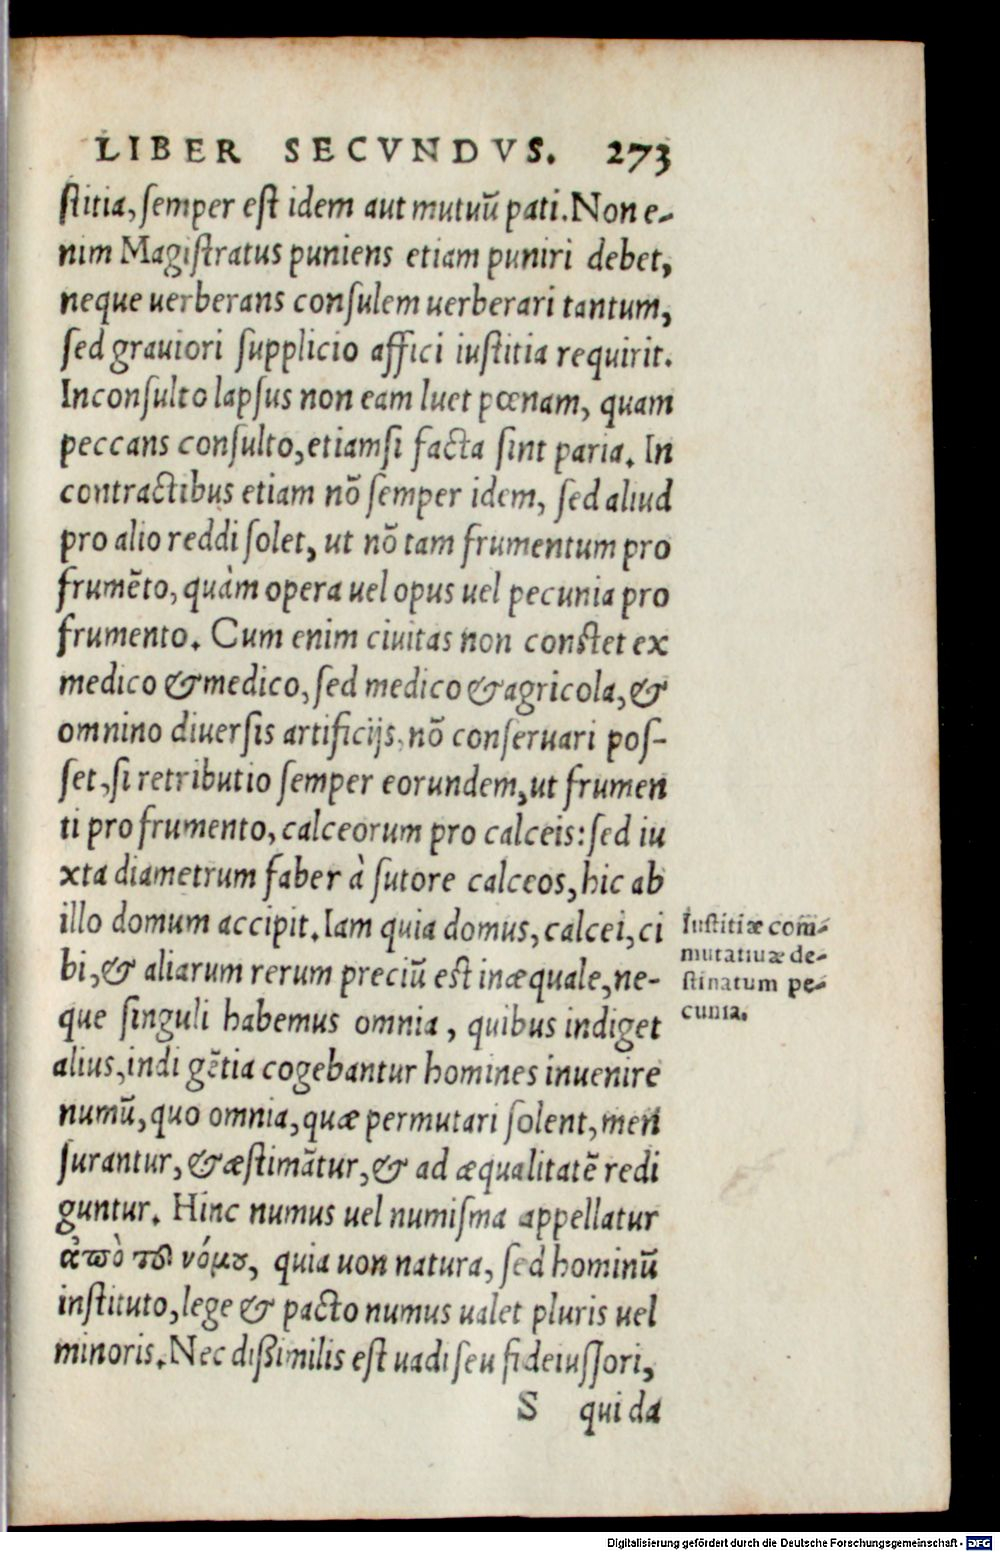 LIBER SECVNDVS. 273
ſtitia, ſemper eſt idem aut mutuũ pati. Non e-
nim Magiſtratus puniens etiam puniri debet,
neque uerberans conſulem uerberari tantum,
ſed grauiori ſupplicio affici iuſtitia requirit.
Inconſulto lapſus non eam luet pœnam, quam
peccans conſulto, etiamſi facta ſint paria. In
contractibus etiam nõ ſemper idem, ſed aliud
pro alio reddi ſolet, ut nõ tam frumentum pro
frumẽto, quàm opera uel opus uel pecunia pro
frumento. Cum enim ciuitas non conſtet ex
medico & medico, ſed medico & agricola, &
omnino diuerſis artificijs, nõ conſeruari poſ-
ſet, ſi retributio ſemper eorundem, ut frumen
ti pro frumento, calceorum pro calceis: ſed iu
xta diametrum faber à ſutore calceos, hic ab
illo domum accipit. Iam quia domus, calcei, ci
bi, & aliarum rerum preciũ eſt inæquale, ne-
que ſinguli habemus omnia, quibus indiget
alius, indigẽtia cogebantur homines inuenire
numũ, quo omnia, quæ permutari ſolent, men
ſurantur, & æſtimãtur, & ad æqualitatẽ redi
guntur. Hinc numus uel numiſma appellatur
ἀπὸ τοῦ νόμου, quia uon natura, ſed hominũ
inſtituto, lege & pacto numus ualet pluris uel
minoris. Nec dißimilis eſt uadi ſeu fideiuſſori,
S qui da
Iuſtitiæ com-
mutatiuæ de-
ſtinatum pe-
cunia.
Digitalisierung gefördert durch die Deutsche Forschungsgemeinschaft - DFG